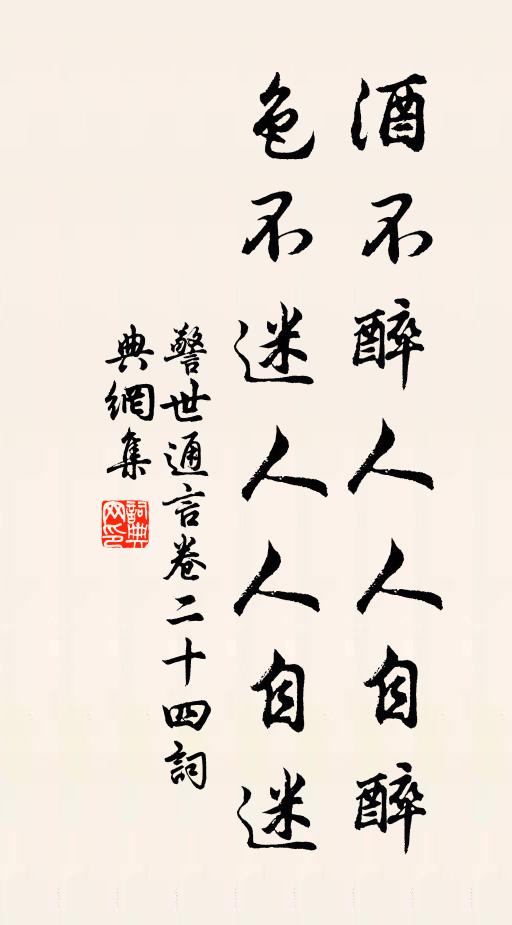 酒不醉人人自醉
色不迷人人自迷
警世通言卷二十四詞
典網集
詞典
网印